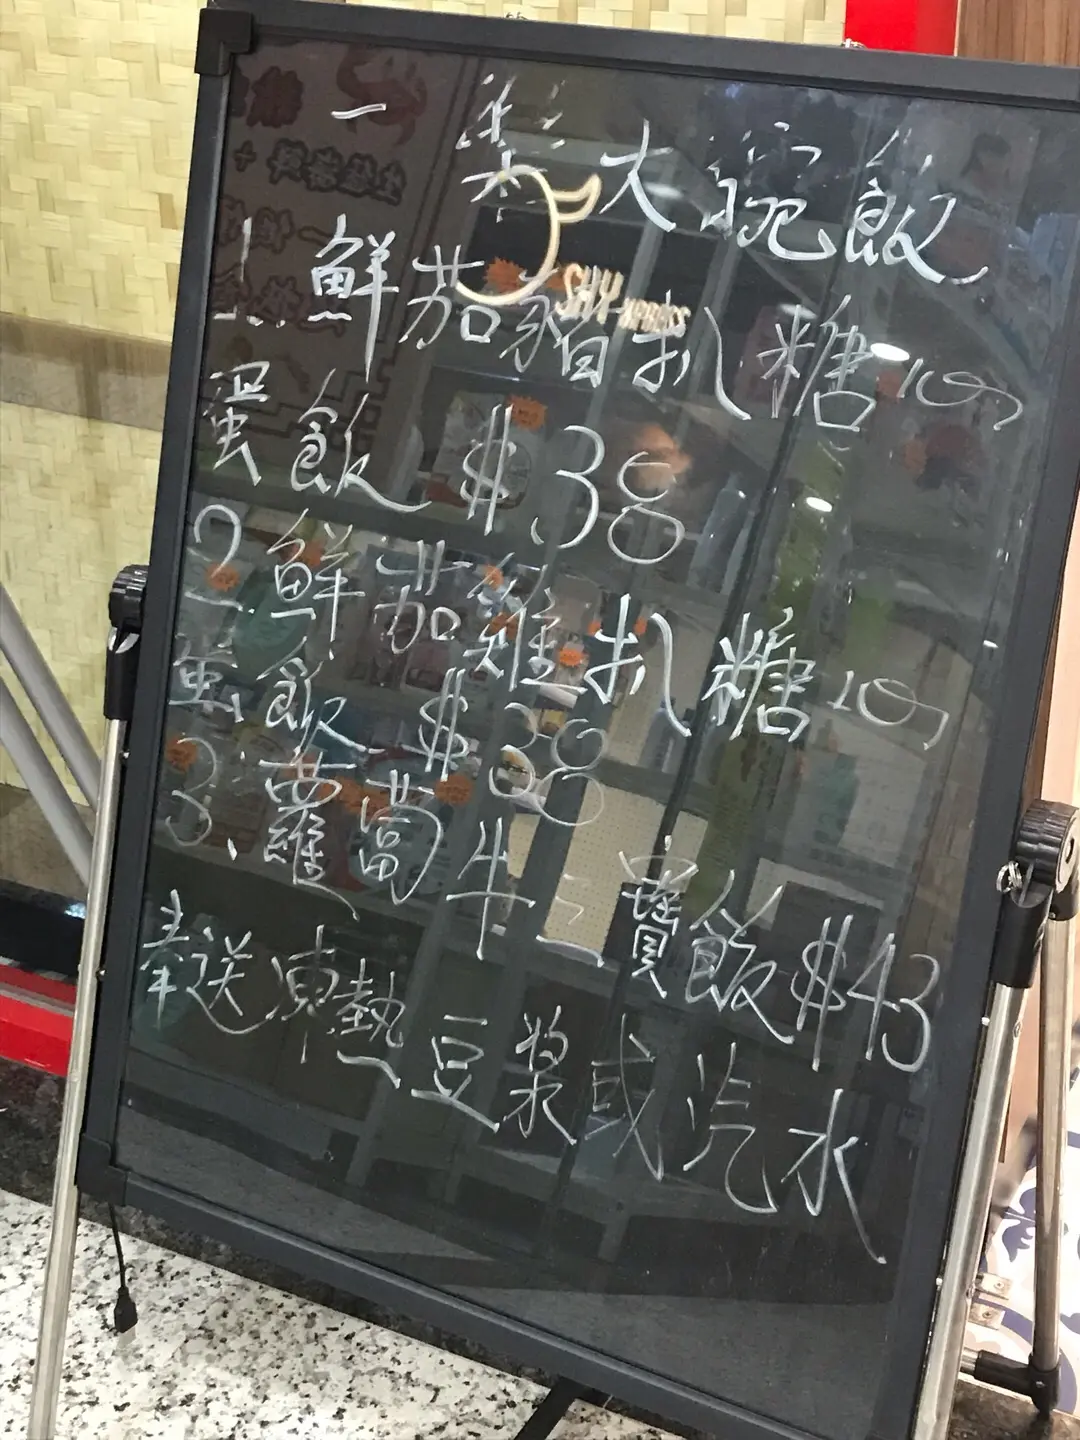 一番大碗飯
1. 鮮茄豬扒糖心
蛋飯 $38
2. 鮮茄雞扒糖心
蛋飯 $38
3. 蘿蔔牛三寶飯 $43
奉送凍熱豆漿或汽水